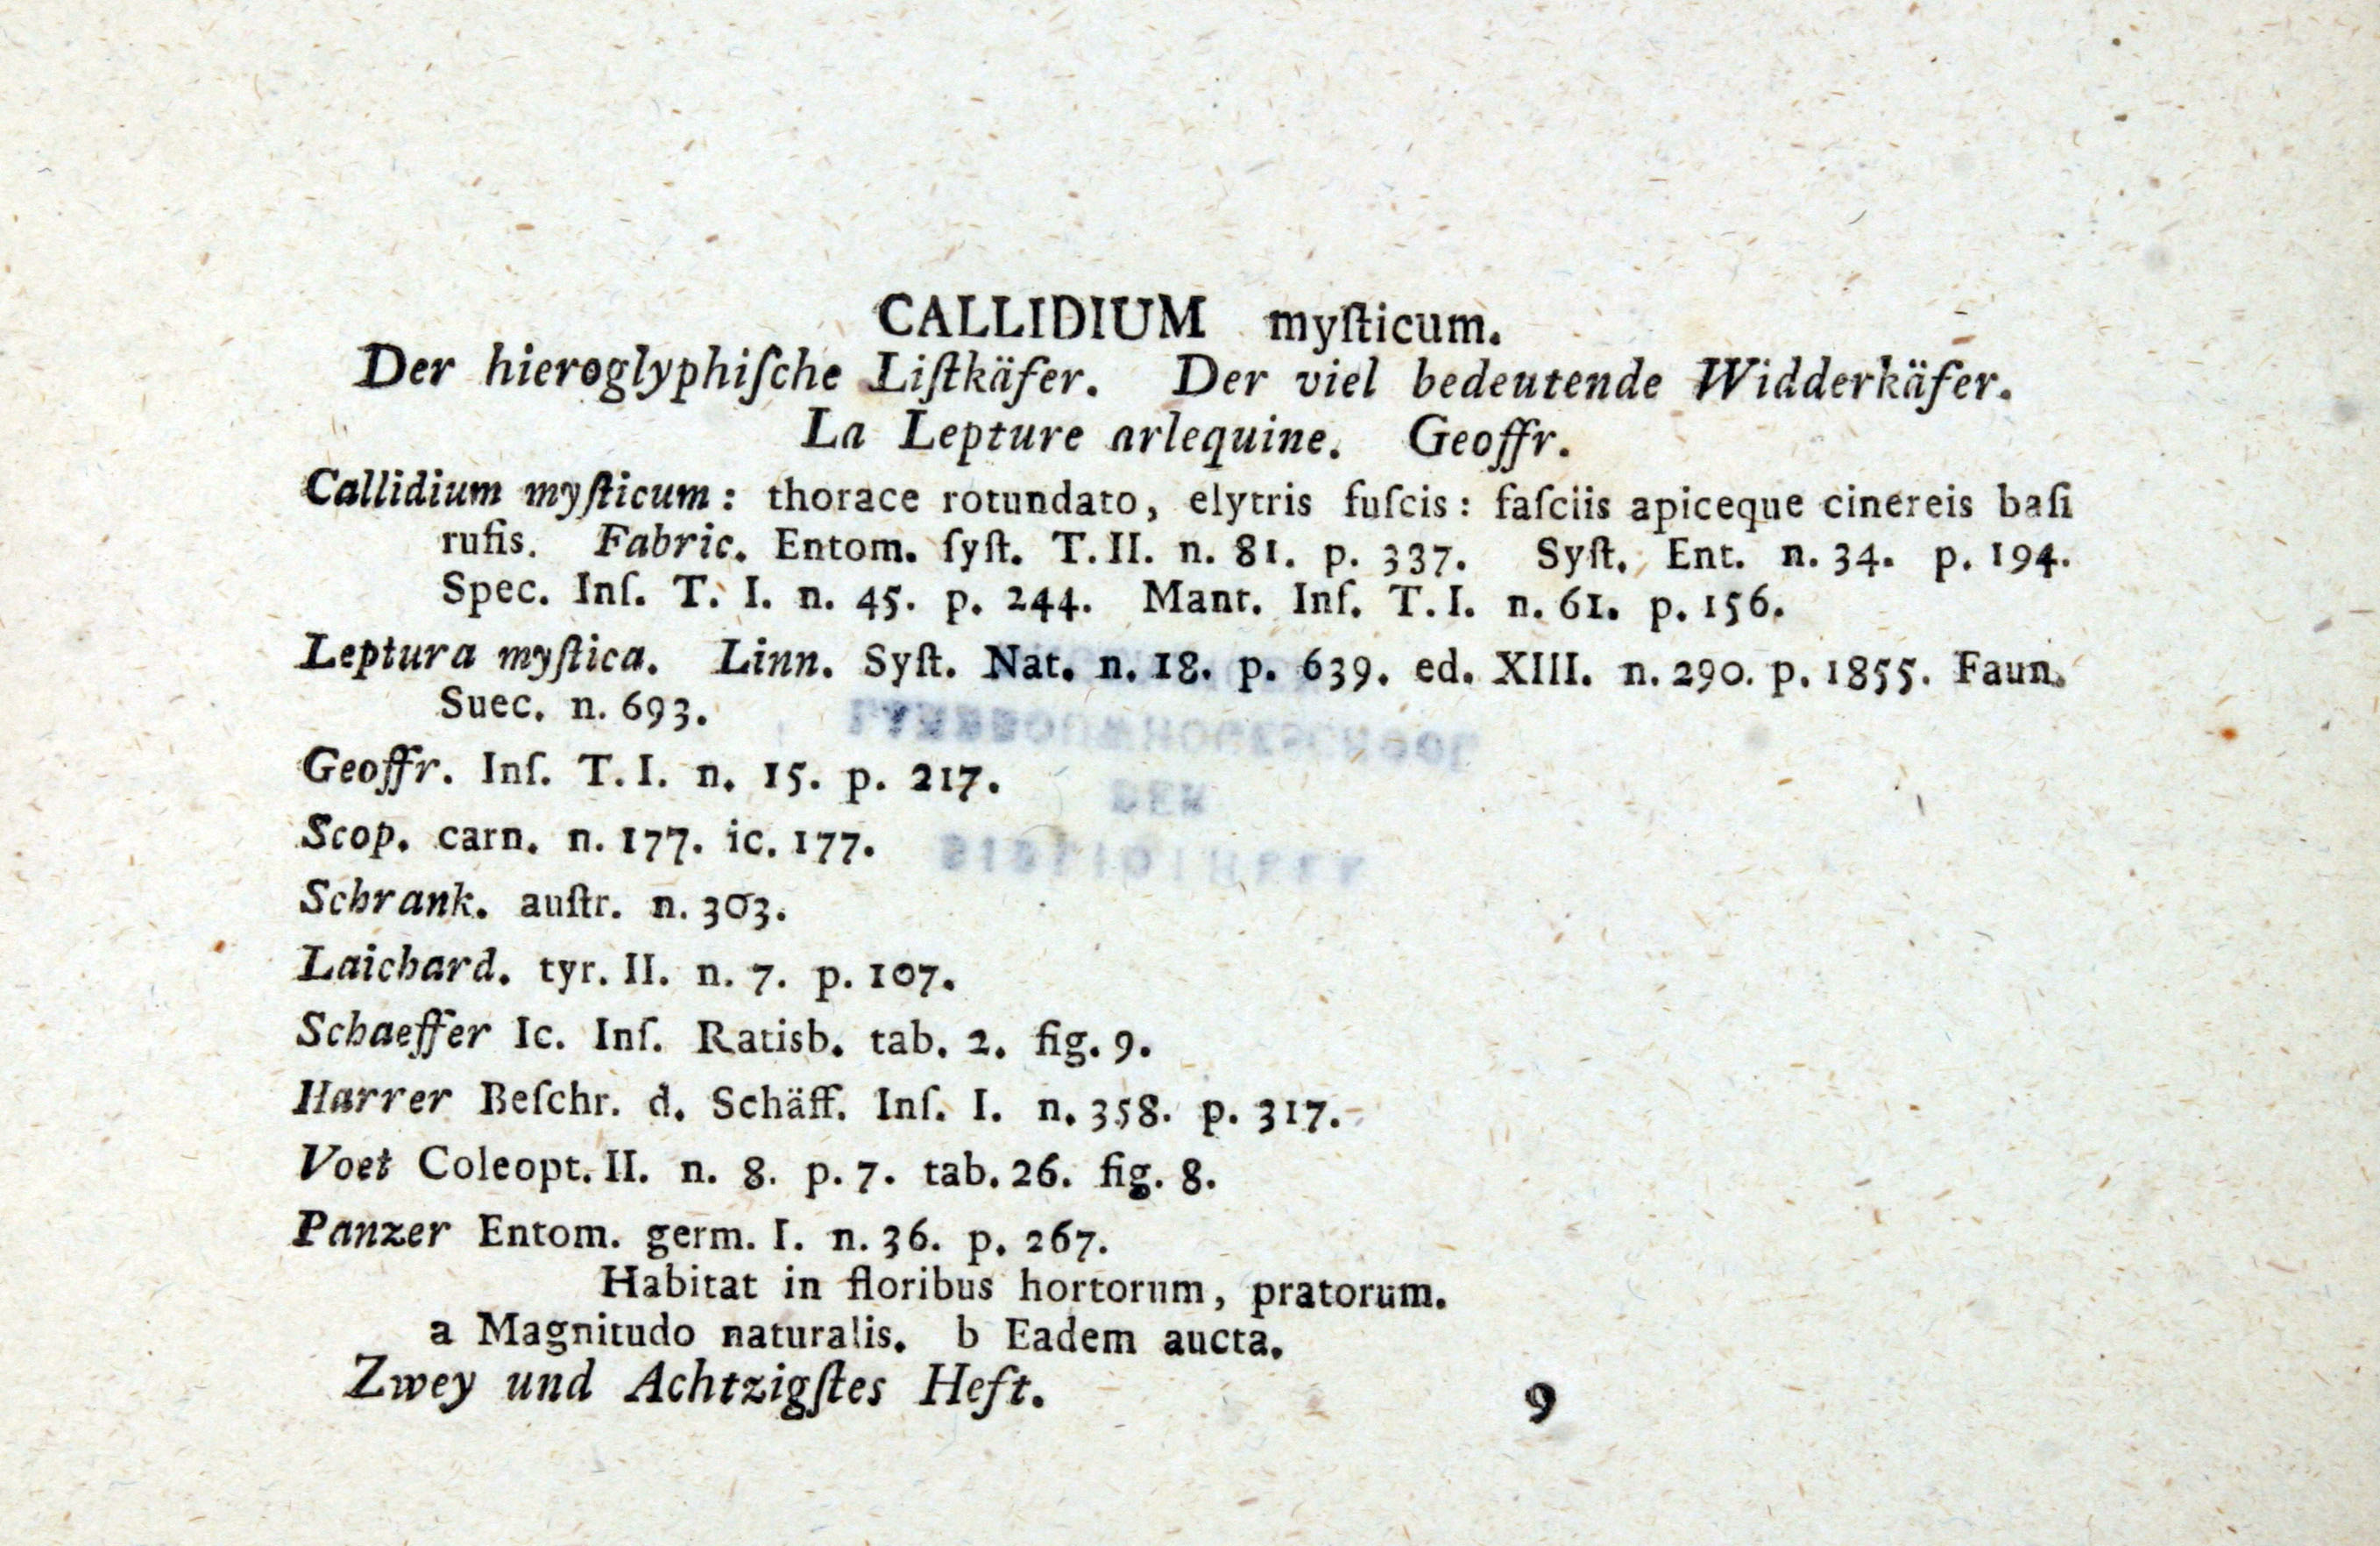 CALLIDIUM myſticum.
Der hieroglyphiſche Liſtkäfer. Der viel bedeutende Widderkäfer.
La Lepture arlequine. Geoffr.
Callidium myſticum: thorace rotundato, elytris fuſcis: faſciis apiceque cinereis baſi
rufis. Fabric. Entom. ſyſt. T. II. n. 81. p. 337. Syſt. Ent. n. 34. p. 194.
Spec. Inſ. T. I. n. 45. p. 244. Mant. Inſ. T. I. n. 61. p. 156.
Leptura myſtica. Linn. Syſt. Nat. n. 18. p. 639. ed. XIII. n. 290. p. 1855. Faun.
Suec. n. 693.
Geoffr. Inſ. T. I. n. 15. p. 217.
Scop. carn. n. 177. ic. 177.
Schrank. auſtr. n. 303.
Laichard. tyr. II. n. 7. p. 107.
Schaeffer Ic. Inſ. Ratisb. tab. 2. fig. 9.
Harrer Beſchr. d. Schäff. Inſ. I. n. 358. p. 317.
Voet Coleopt. II. n. 8. p. 7. tab. 26. fig. 8.
Panzer Entom. germ. I. n. 36. p. 267.
Habitat in floribus hortorum, pratorum.
a Magnitudo naturalis. b Eadem aucta.
Zwey und Achtzigſtes Heft. 9